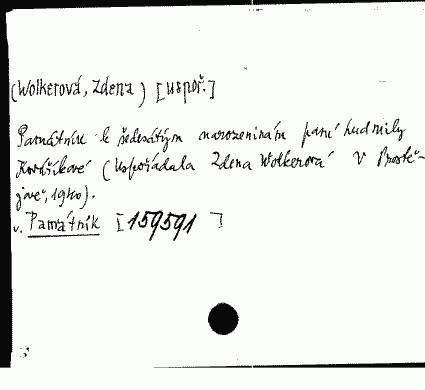 (Wolkerová, Zdena) [uspoř.]
Památník k šedesátým narozeninám paní Ludmily
(Uspořádala Zdena Wolkerová V Prostě-
jově, 1940).
v. Památník [159591]